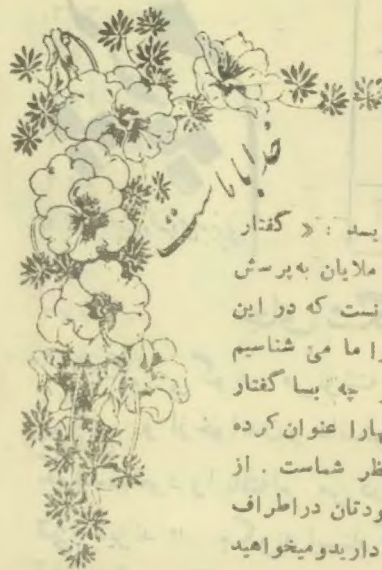 خدا با ماست
یسد : « گفتار
ملایان به پرسش
نست که در این
را ما می شناسیم
چه بسا گفتار
بهارا عنوان کرده
ظر شماست . از
ودتان دراطراف
داریدومیخواهید